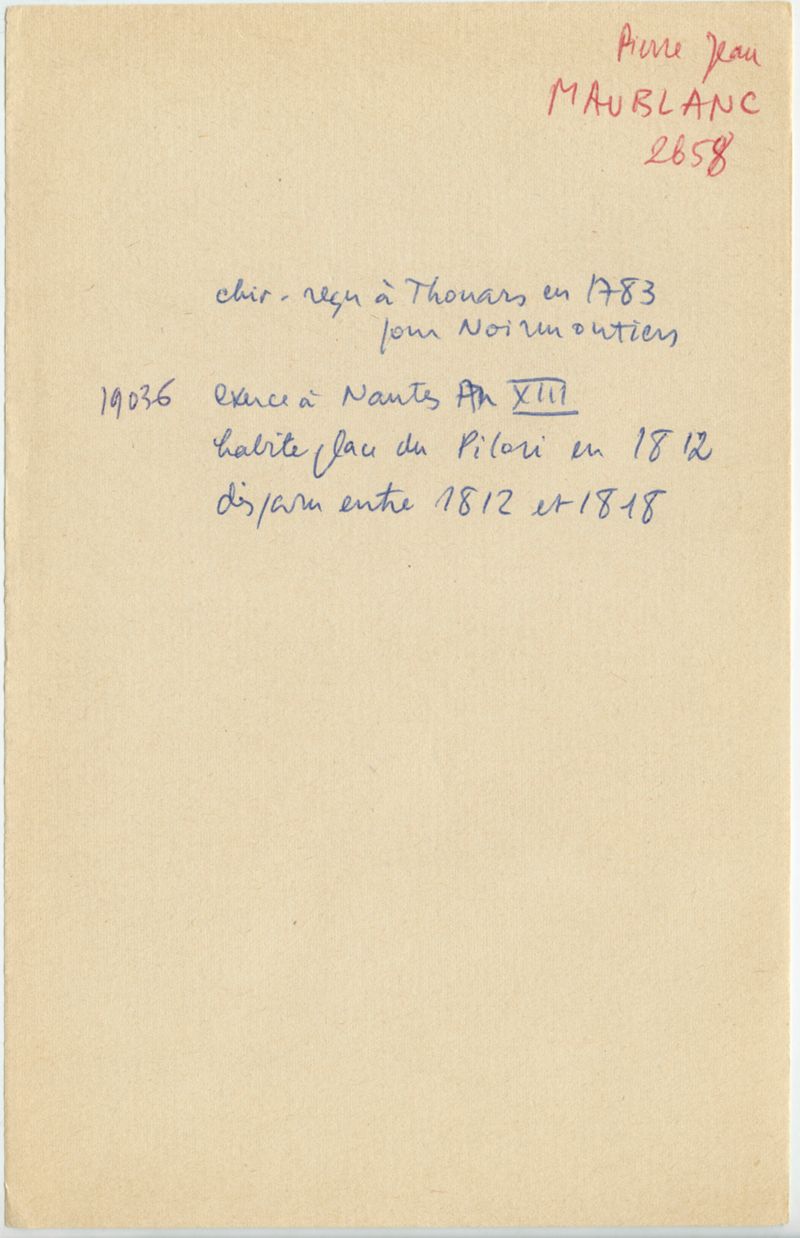 Pierre Jean
MAUBLANC
2658
chir. reçu à Thouars en 1783
pour Noirmoutiers
19036 exerce à Nantes An XIII
habite place du Pilori en 1812
disparu entre 1812 et 1818